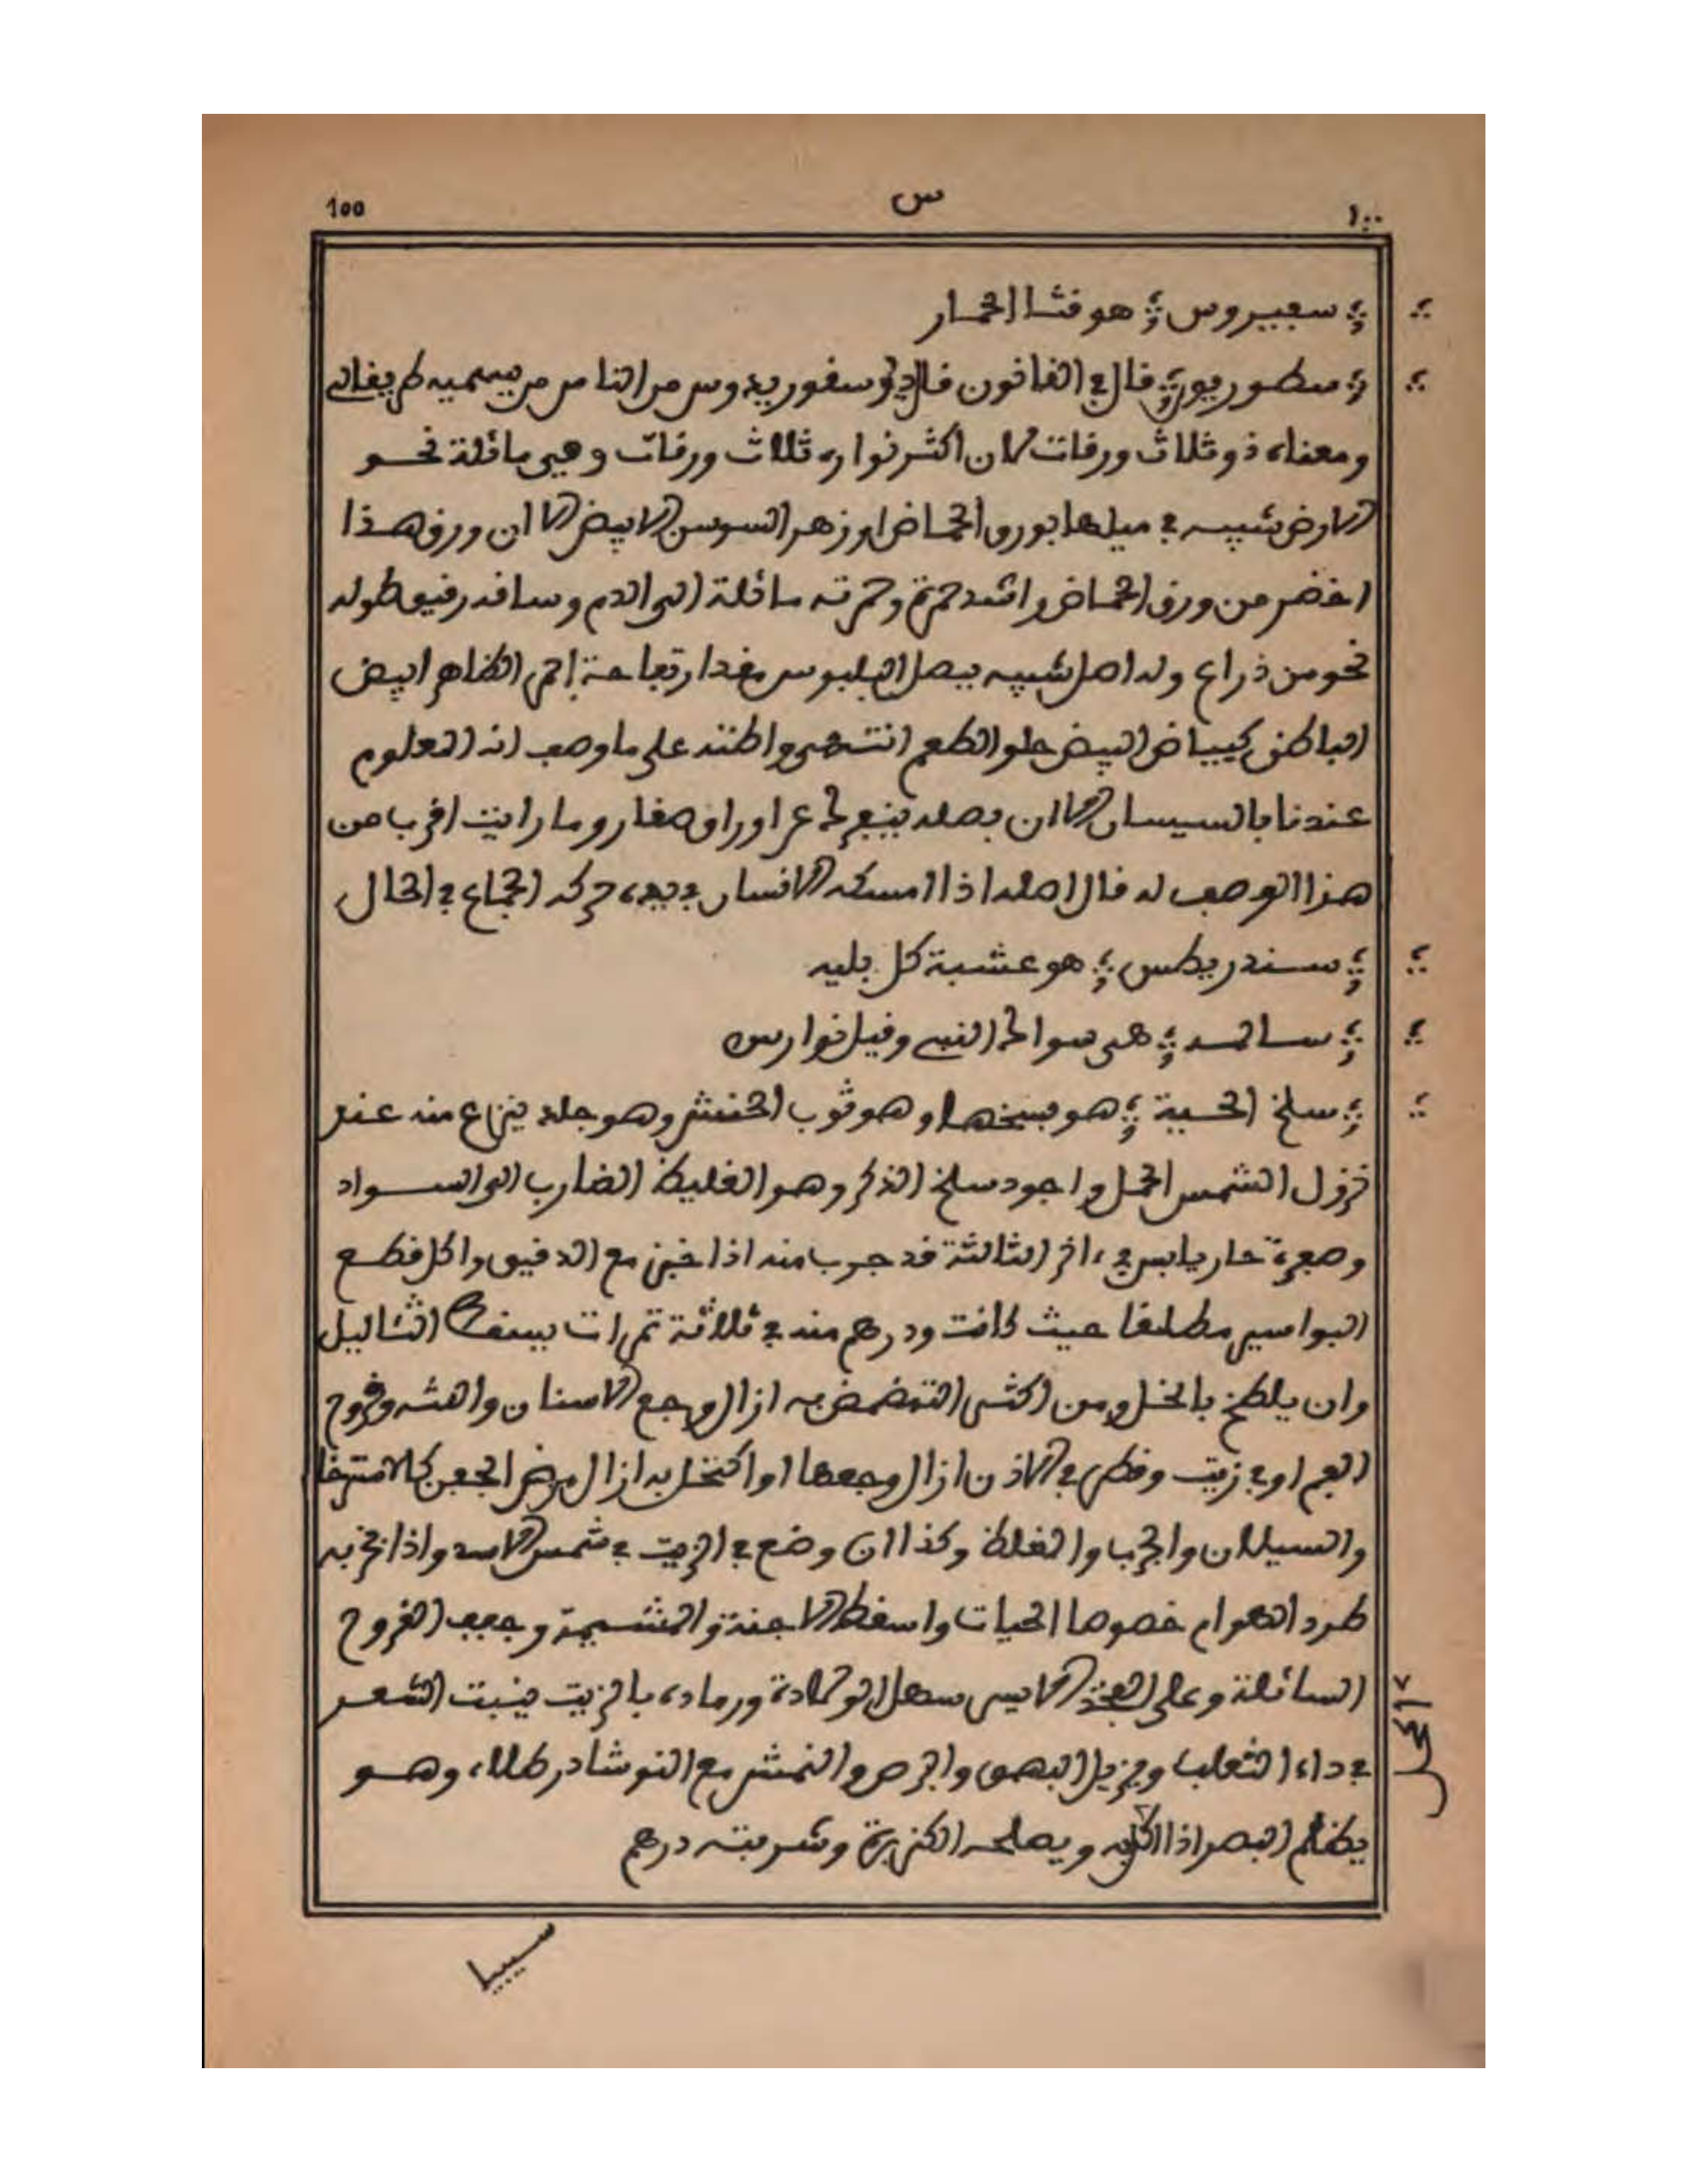 ١٠٠ س 100
سعبيروس هو فثا الحمار
سطوريون قال في القانون قال ديوسقوريدوس من الناس من يسميه طريفلن
ومعناه ذو ثلاث ورقات لان اكثر نواره ثلاث ورقات وهي مائلة نحو
الارض شبيه في ميلها بورق الحماض او زهر السوسن الابيض الا ان ورق هذا
اخضر من ورق الحماض واشد حمرة وحمرته مائلة الى الدم وساقه رقيق طوله
نحو من ذراع وله اصل شبيه ببصل البلبوس مقدار تفاحة احمر الظاهر ابيض
الباطن كبياض البيض حلو الطعم انتهى واظنه على ما وصف انه المعلوم
عندنا بالسيسان الا ان بصله ينبع عن اوراق صغار وما رايت اقرب من
هذا الوصف له قال اصله اذا امسكه الانسان في يده حركه الجماع في الحال
سندريطس هو عشبة كل بليه
سالمه هى سوالح النبي وقيل نوارس
سلخ الحية هو بسخها وهو ثوب الحنش وهو جلد ينزاع منه عند
نزول الشمس الحمل واجود سلخ الذكر وهو الغليظ الضارب الى السواد
وصعره حار يابس في ءاخر الثالثة قد جرب منه اذا خبز مع الدقيق واكل قطع
البواسير مطلقا حيث كانت ودرهم منه في ثلاثة تمرات يسقط الثئاليل
وان يلطخ بالخل ومن اكثر التمضمض به ازال وجع الاسنان واللثه وقروح
الفم او في زيت وقطر في الاذن ازال وجعها او اكتحل به ازال مرض الجفن كالاسترخا
والسيلان والجرب والغلظ وكذا ان وضع في الزيت في شمس الاسد واذا بخر به
طرد الهوام خصوصا الحيات واسقط الاجنة والمشيمة وجفف القروح
السائلة وعلى الفخذ الايسر سهل الولادة ورماده بالزيت ينبت الشعر
في داء الثعلب ويزيل البهق والبرص والنمش مع النوشادر طلاء وهو
يظلم البصر اذا اكل به ويصلحه الكزبرة وشربته درهم
اكحل
سيبيا